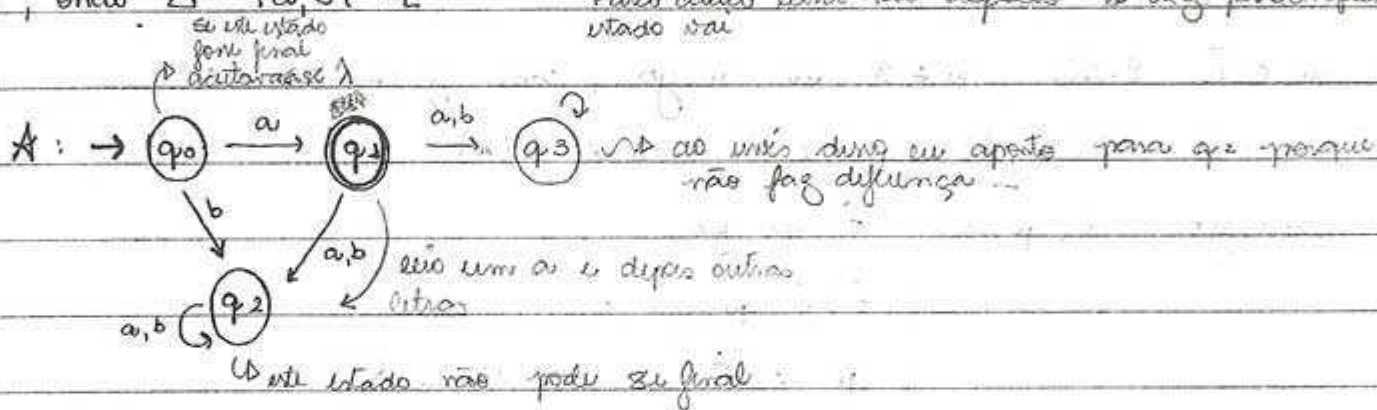 se este estado
fosse final
aceitava-se λ
estado vai
A: → q0 a q1 a,b q3 ao invés disso eu aponto para q2 porque
não faz diferença...
b
a,b leio um a e depois outras
letras
q2
a,b
este estado não pode ser final